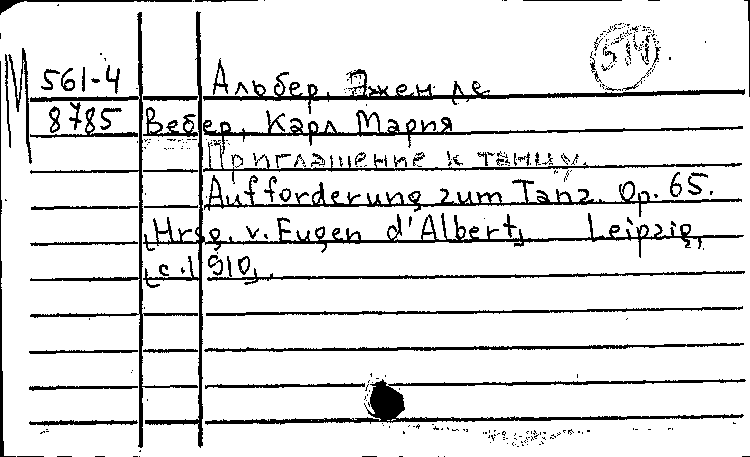 514
М 561-4 Альбер, Эжен де
8785 Вебер, Карл Мария
Приглашение к танцу.
Aufforderung zum Tanz. Op. 65.
[Hrsg. v. Eugen d'Albert] Leipzig,
[c. 1910].